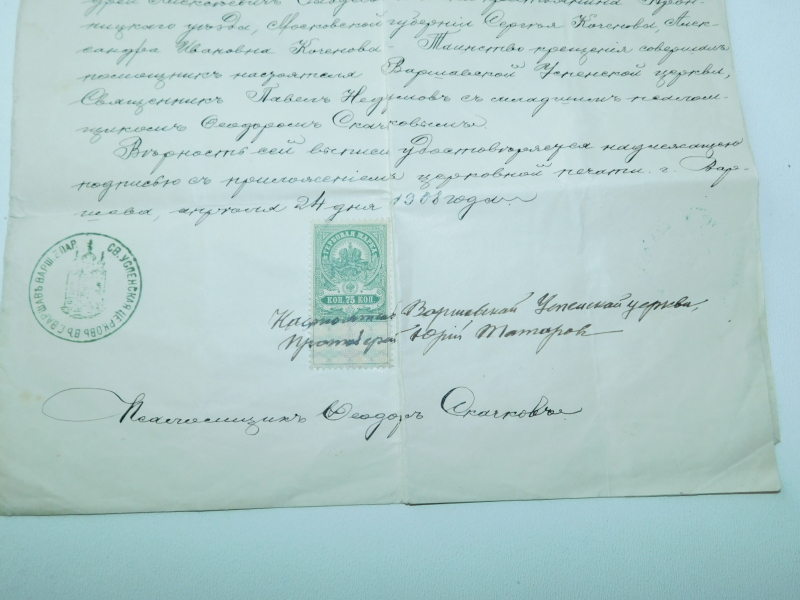 ницкаго уѣзда, Московской губерніи Сергея Коченова, Алек-
сандра Ивановна Коченова. Таинство крещенія совершалъ
помощникъ настоятеля Варшавской Успенской церкви,
Священникъ Павелъ съ младшимъ псалом-
щикомъ Ѳеодоромъ Скачковымъ.
Вѣрность сей выписи удостовѣряется надлежащею
подписью съ приложеніемъ церковной печати. г. Вар-
шава, апрѣля 24 дня 1908 года.
СВ. УСПЕНСКАЯ ЦЕРКОВЬ ВЪ Г. ВАРШАВѢ ВАРШ. ЕПАР.
ГЕРБОВАЯ МАРКА
КОП. 75 КОП.
Настоятель Варшавской Успенской церкви,
Протоіерей Юрій Татаров
Псаломщикъ Ѳеодоръ Скачковъ